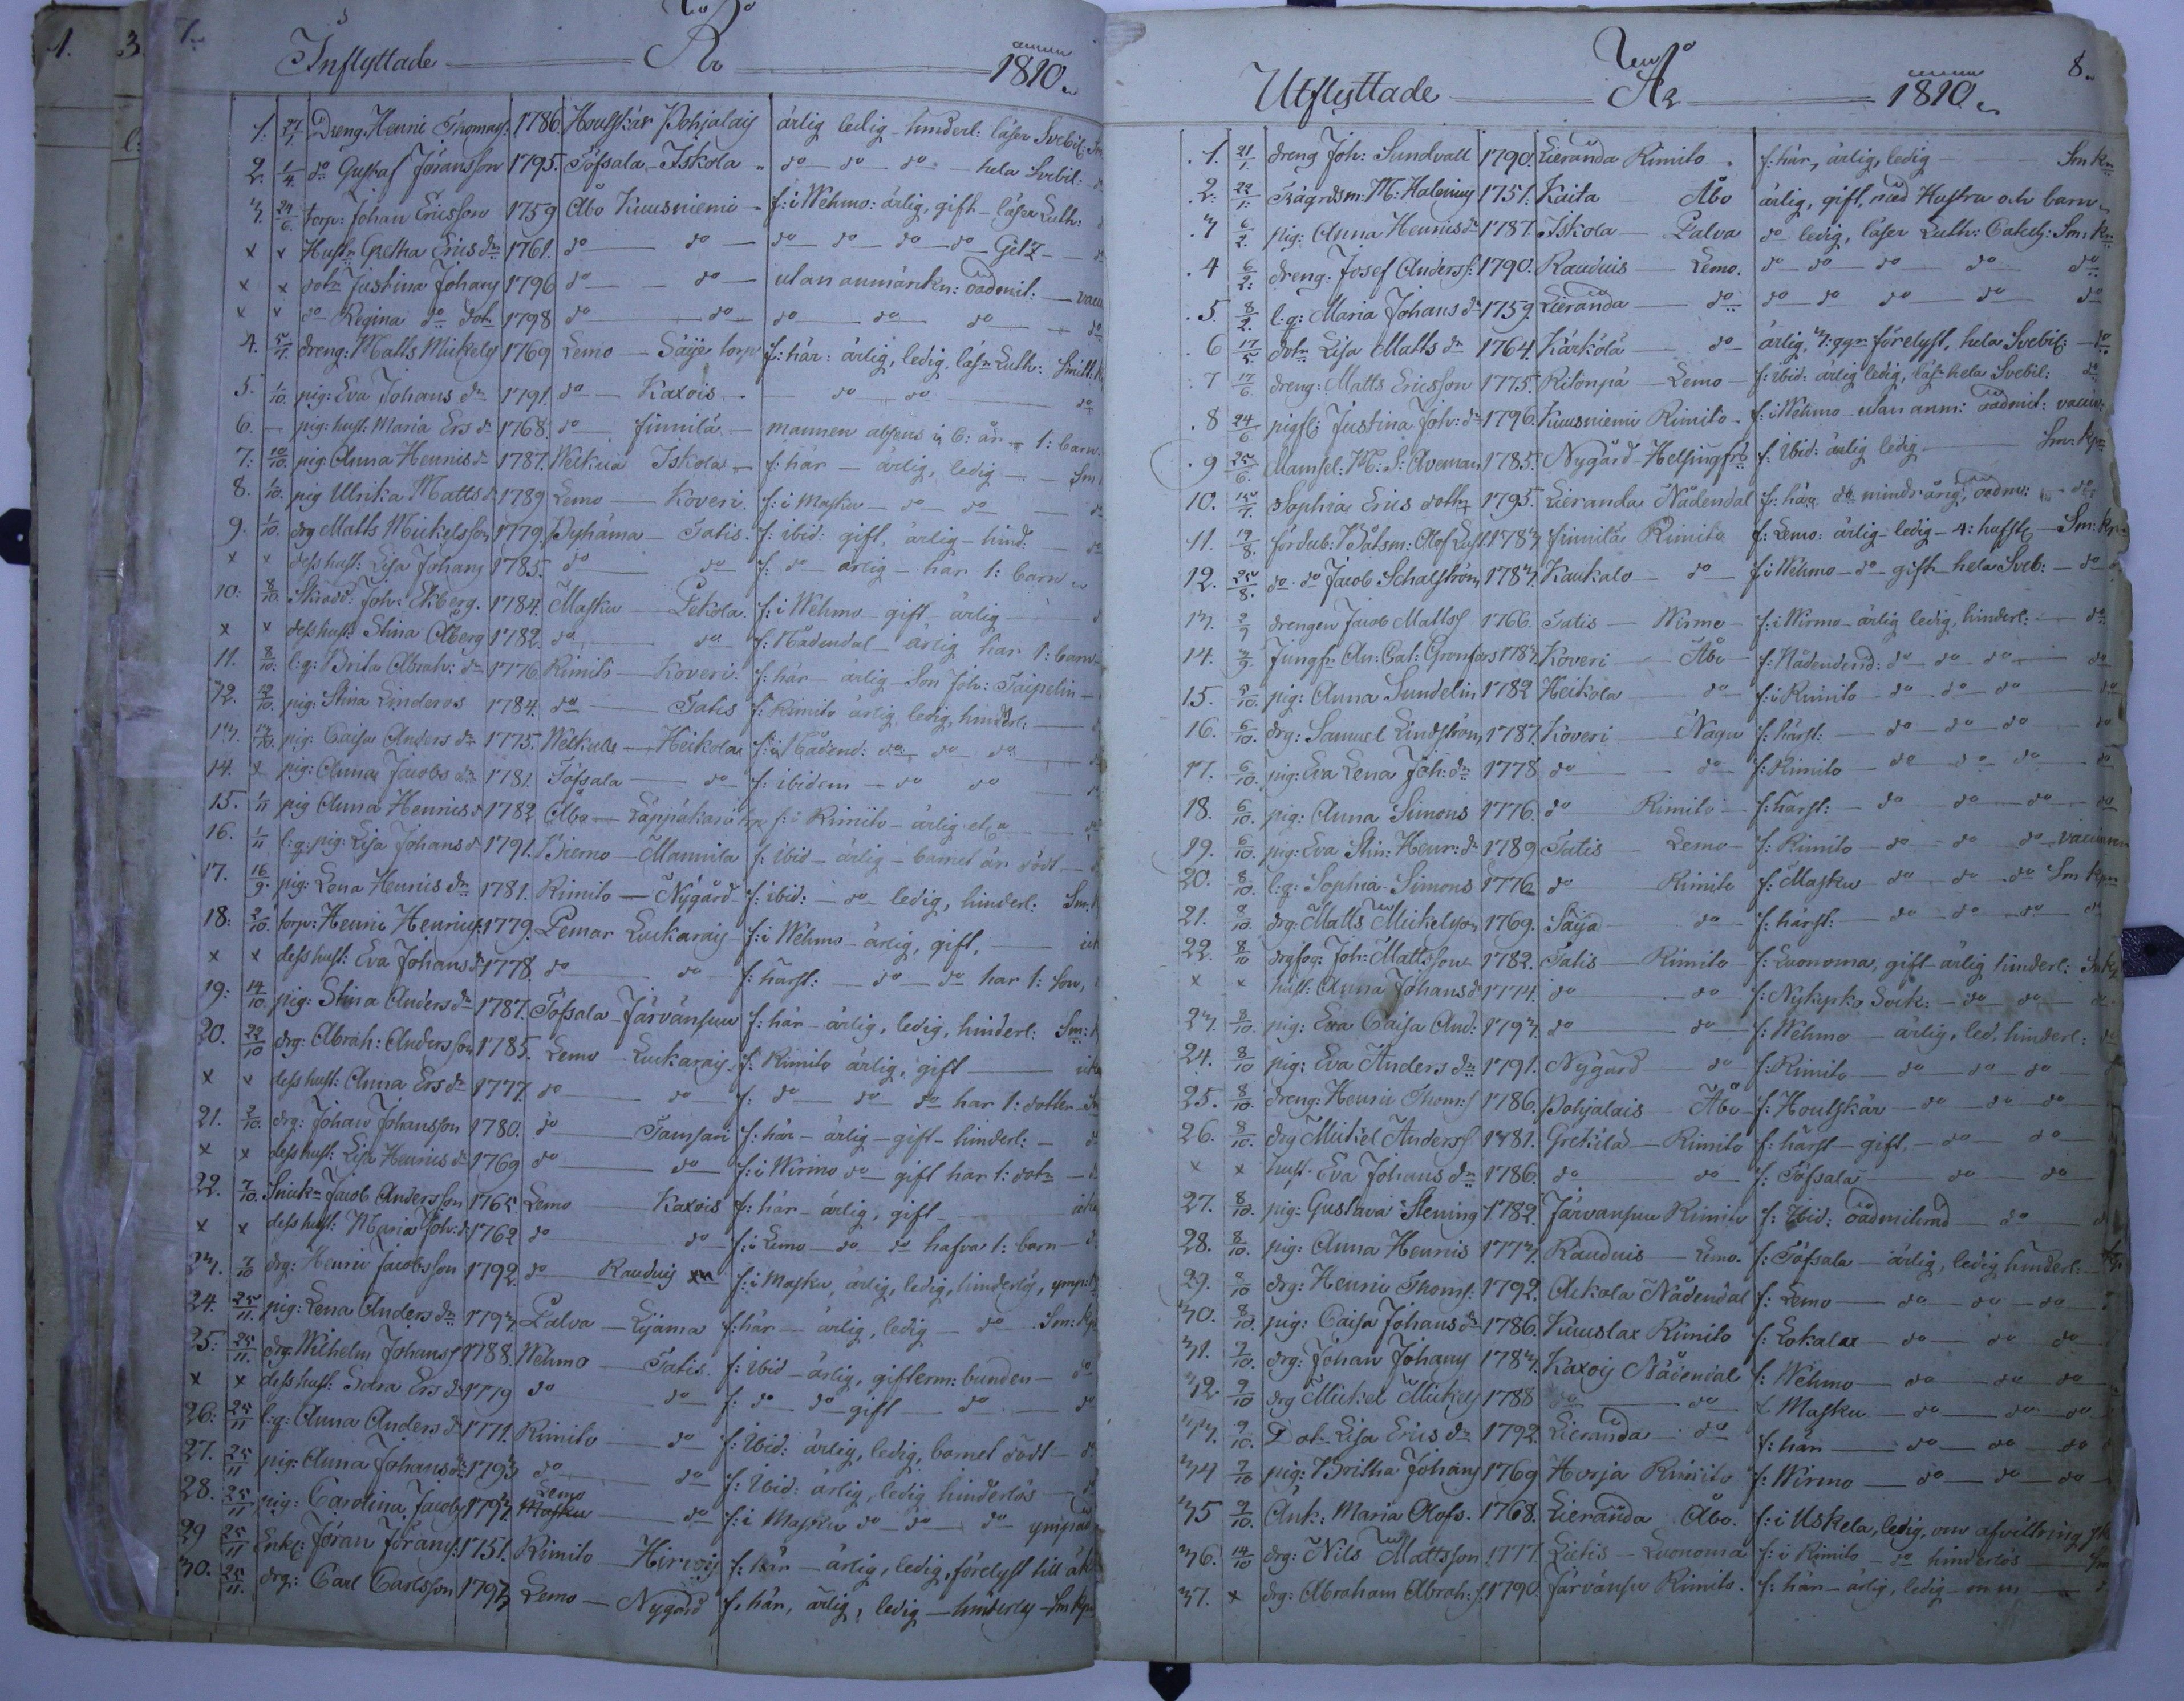 1. 3. 7.
Inflyttade År 1810.
1. 27/1. Dreng. Henric Thomass. 1786. Houtskär Pohjalais ärlig ledig - hinderl: läser Svebil:
2. 1/4. do Gustaf Göransson 1795. Töfsala - Iskola do do do - hela Svebil:
3. 24/6. torp: Johan Ericsson 1759 Åbo Kuusniemi - f: i Wehmo: ärlig, gift - läser Luth:
x x Hustr: Gretha Erics dr 1761. do do do do do do
x x dotr Justina Johans 1796 do do utan anmärkn: oadmit:
x x do Regina do dotr 1798 do do do do do do
4. dreng: Matts Mickels 1769 Lemo - Säije torp f: här: ärlig, ledig, läsr Luth:
5. 1/10. pig: Eva Johans dr 1791. do - Kaxois - do do do
6. - pig: hust: Maria Ers dr 1768. do Finnilä - mannen absens i 6: år - 1: barn
7: 10/10. pig: Anna Henrics dr 1787. Welkua Iskola - f: här - ärlig, ledig
8. 1/10. pig Ulrika Matts d: 1789 Lemo - Koveri. f: i Masku - do do
9. 1/10. drg Matts Mickelsson 1779 Pyhäma - Tatis. f: ibid: gift, ärlig - hind:
x x dess hust: Lisa Johans 1785. do do f: do ärlig - har 1: barn
10: 8/10. Skrädd: Joh: Ekberg. 1784. Masku - Pekola. f: i Wehmo gift, ärlig
x x dess hust: Stina Åberg 1782. do do f: Nådendal ärlig har 1: barn
11. 8/10. l: q: Brita Abrah: dr 1776 Rimito - Koveri. f: här - ärlig - Son Joh: Taipelin
12. 12/10. pig: Stina Linderos 1784. do Tatis f: Rimito ärlig, ledig, hinderl:
13. 13/10. pig: Caisa Anders dr 1775. Welkua - Heikola f: i Nådend: do do do
14. x pig: Anna Jacobs dr 1781. Töfsala do f: ibidem - do do
15. 1/11 pig Anna Henrics d 1782 Åbo - Läppäkari torp f: i Rimito - ärlig etc
16. 1/11 l: q: pig: Lisa Johans d: 1791. Wirmo - Mannila f: ibid - ärlig - barnet är dödt
17. 16/9. pig: Lena Henrics dr 1781. Rimito - Nygård f: ibid: do ledig, hinderl:
18: 2/10. torp: Henric Henricss 1779. Pemar Luckarais f: i Wehmo - ärlig, gift,
x x dess hust: Eva Johans d 1778. do do f: härst: do do har 1: son,
19: 14/10. pig: Stina Anders dr 1787. Töfsala - Järvänsuu f: här - ärlig, ledig, hinderl: Sm:
20. 22/10 drg: Abrah: Andersson 1785. Lemo - Luckarais f: Rimito ärlig, gift
x x dess hust: Anna Ers dr 1777. do do f: do do do har 1: dotter
21. 2/10. drg: Johan Johansson 1780. do Tamsari f: här - ärlig - gift - hinderl:
x x dess hust: Lisa Henrics dr 1769 do do f: i Wirmo do gift har 1: dotr
22. 7/10. Snickr Jacob Andersson 1765. Lemo Kaxois f: här - ärlig, gift
x x dess hust: Maria Joh: d 1762 do do f: i Lemo - do do hafva 1: barn
23. 7/10 drg: Henric Jacobsson 1792. do Rauduis f: i Masku, ärlig, ledig, hinderlös, ymp:
24. 25/11. pig: Lena Anders dr 1793. Palva - Lijama f: här - ärlig, ledig - do Sm: kp
25: 25/11. drg: Wilhelm Johans 1788. Wehmo - Tatis f: ibid - ärlig, gifterm: bunden do
x x dess hust: Sara Ers dr 1779 do do f: do do gift do do
26: 25/11 l: q: Anna Anders d 1771. Rimito do f: Ibid: ärlig, ledig, barnet dödt
27. 25/11 pig: Anna Johans dr 1793 do do f: Ibid: ärlig, ledig hinderlös
28. 25/11 pig: Carolina Jacobs 1793. Lemo Masku do f: i Masku do do do ympad
29 25/11 Enkl: Jöran Jörans: 1751. Rimito - Hirvois f: här - ärlig, ledig, förelyst till
30. 25/11. drg: Carl Carlsson 1793 Lemo - Nygård f: här, ärlig, ledig - hinderls - Sm kpr
8.
Utflyttade År 1810.
1. 21/1. dreng Joh: Sundvall 1790. Lieranda Rimito. f: här, ärlig, ledig Sm kr
2. 22/1. Trägrdsm: M: Halenius 1751. Kaita Åbo ärlig, gift, med Hustru och barn
3 6/2. pig: Anna Henrics dr 1787. Iskola - Palva do ledig, läser Luth: Catech: Sm: kr
4 6/2. dreng: Josef Anderss: 1790. Rauduis - Lemo. do do do do do
5. 8/2. l: q: Maria Johans dr 1759. Lieranda do do do do do do
6 17/5. dotr Lisa Matts dr 1764. Kärkölä do ärlig, 3: gr förelyst, hela Svebil: do
7 17/6. dreng: Matts Ericsson 1775. Ritonpä - Lemo - f: ibid: ärlig ledig, läs: hela Svebil: do
8 24/6 pigfl: Justina Joh: dr 1796. Kuusniemi Rimito - f: i Wehmo - utan anm: oadmit: vaccin:
9 25/6. Mamsel: M: S: Aveman 1785. Nygård - Helsingfrs f: ibid: ärlig ledig Sm: kpr
10. 15/7. Sophia Erics dottr 1795. Lieranda Nådendal f: här do mindrårig, oadm: do
11. 19/8. fördub: Båtsm: Olof Lust 1783 Finnilä Rimito f: Lemo: ärlig - ledig - 4: husfl: Sm: kpr
12. 25/8. do do Jacob Schalström 1783. Kaukalo do f: i Wehmo - do gift hela Sveb: do
13. 2/9 drengen Jacob Mattss 1766. Tatis - Wirmo - f: i Wirmo - ärlig ledig, hinderl: do
14. 3/9. Jungfr An: Cat: Gronfors 1783. Koveri - Åbo - f: Nådendend: do do do do
15. 5/10. pig: Anna Sundelin 1782 Heikola do f: i Rimito do do do do
16. 6/10. drg: Samuel Lindström 1787. Koveri Nagu f: härst: do do do do
17. 6/10. pig: Eva Lena Joh: dr 1778 do do f: Rimito do do do do
18. 6/10. pig: Anna Simons 1776. do Rimito f: härst: do do do do
19. 6/10. pig: Eva Stin: Henr: dr 1789 Tatis Lemo f: Rimito do do do vaccinera
20. 8/10. l: q: Sophia Simons 1776 do Rimito f: Masku do do do Sm kpn
21. 8/10. drg: Matts Mickelsson 1769. Saija do f: härst: do do do do
22. 8/10 drgfog: Joh: Mattsson 1782. Tatis - Rimito f: Luonoma, gift ärlig hinderl: Sm kp
x x hust: Anna Johans d 1774. do do f: Nykyrko Sock: do do do
23. 8/10. pig: Eva Caisa And: 1793. do do f: Wehmo - ärlig, led, hinderl: do
24. 8/10 pig: Eva Anders dr 1791. Nygård do f: Rimito do do do
25. 8/10. dreng: Henric Thoms: 1786. Pohjalais Åbo f: Houtskär do do do
26. 8/10. drg Mickel Anderss 1781. Grekilä - Rimito f: härst - gift, do do
x x hust: Eva Johans dr 1786. do do f: Töfsala do do
27. 8/10. pig: Gustava Stening 1782. Järvansuu Rimito f: Ibid: oadmitterad do
28. 8/10. pig: Anna Henrics 1773. Rauduis - Lemo. f: Töfsala - ärlig, ledig hinderl:
29. 8/10 drg: Henric Thoms: 1792. Aikala Nådendal f: Lemo do do do
30. 8/10. pig: Caisa Johans dr 1786. Kuuslax Rimito f: Lokalax do do do
31. 9/10. drg: Johan Johans 1783. Kaxois Nådendal f: Wehmo do do do
32. 9/10 drg Mickel Mickels 1788 do do f. Masku do do do
33. 9/10. Dotr Lisa Erics dr 1792. Lieranda do f: här do do do
34 9/10 pig: Britha Johans 1769 Horja Rimito f: Wirmo do do do
35 9/10. Änk: Maria Olofs. 1768. Lieranda Åbo. f: i Uskela, ledig, om afvittring
36. 14/10 drg: Nils Mattsson 1777. Lietis - Luonoma f: i Rimito - do hinderlös Sm
37. x drg: Abraham Abrah: s. 1790. Järvänsu Rimito. f: här - ärlig, ledig